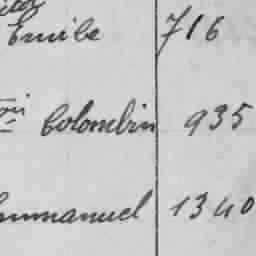 Emile 716
Colombin 935
Emmanuel 1340